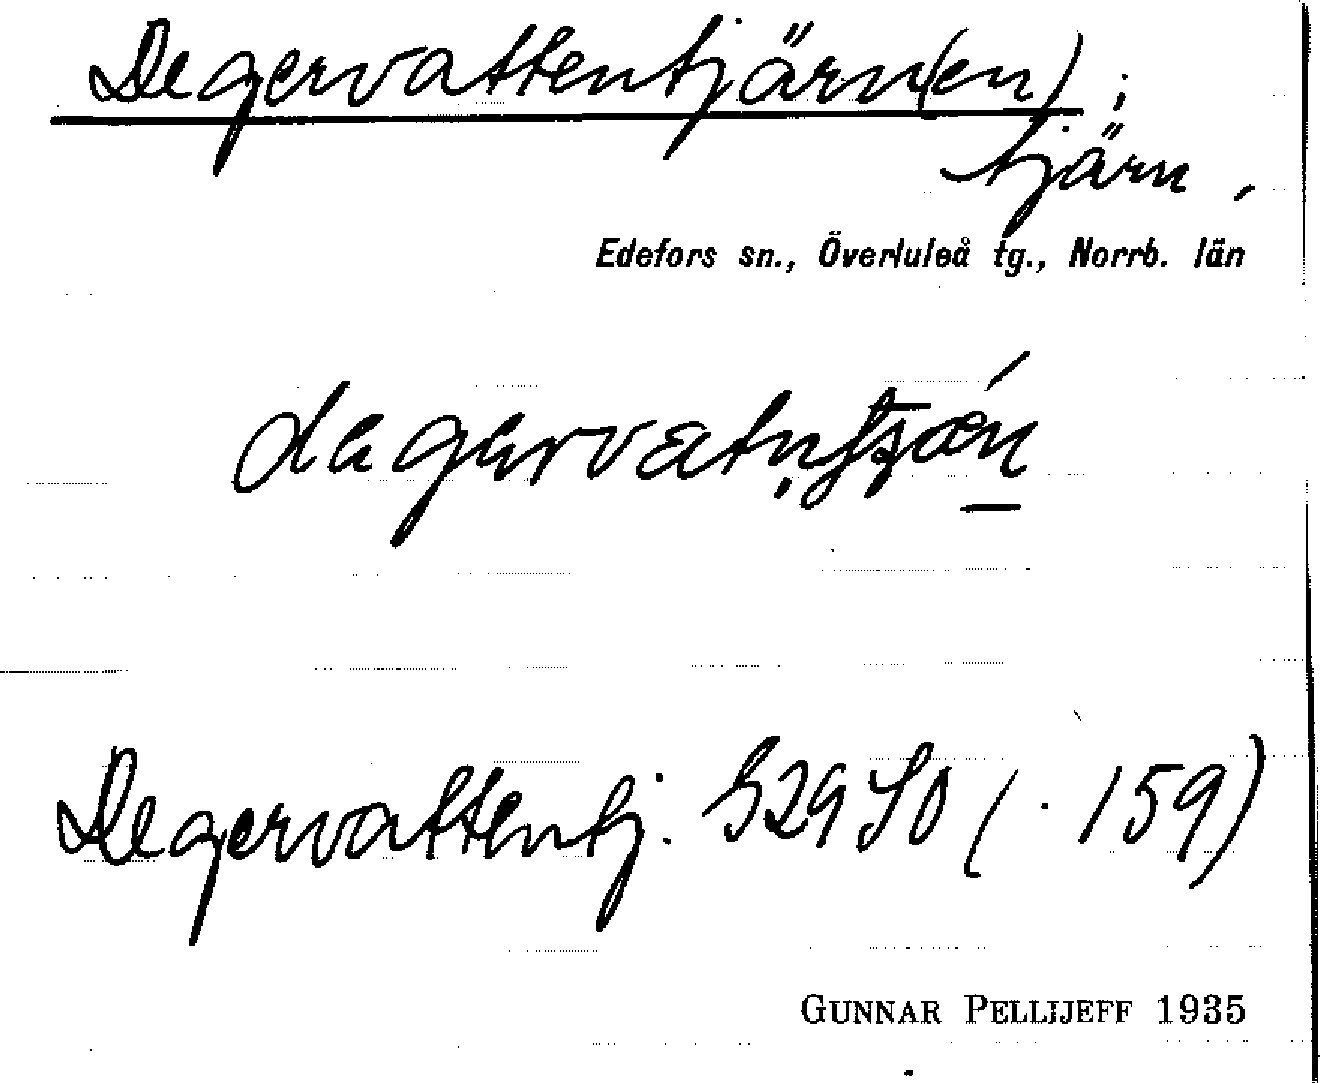 Degervattentjärn(en);
tjärn,
Edefors sn., Överluleå tg., Norrb. län
Degervattentj. S29SO (· 159)
GUNNAR PELLIJEFF 1935